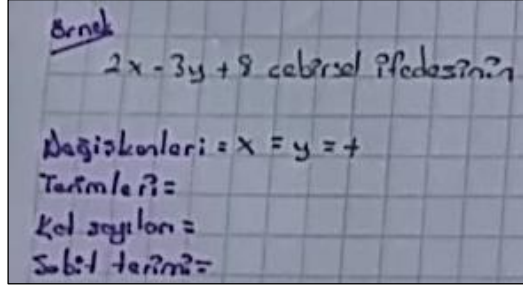 Örnek
2x - 3y + 8 cebirsel ifadesinin
Değişkenleri = x = y = +
Terimleri =
Kat sayıları =
Sabit terimi =